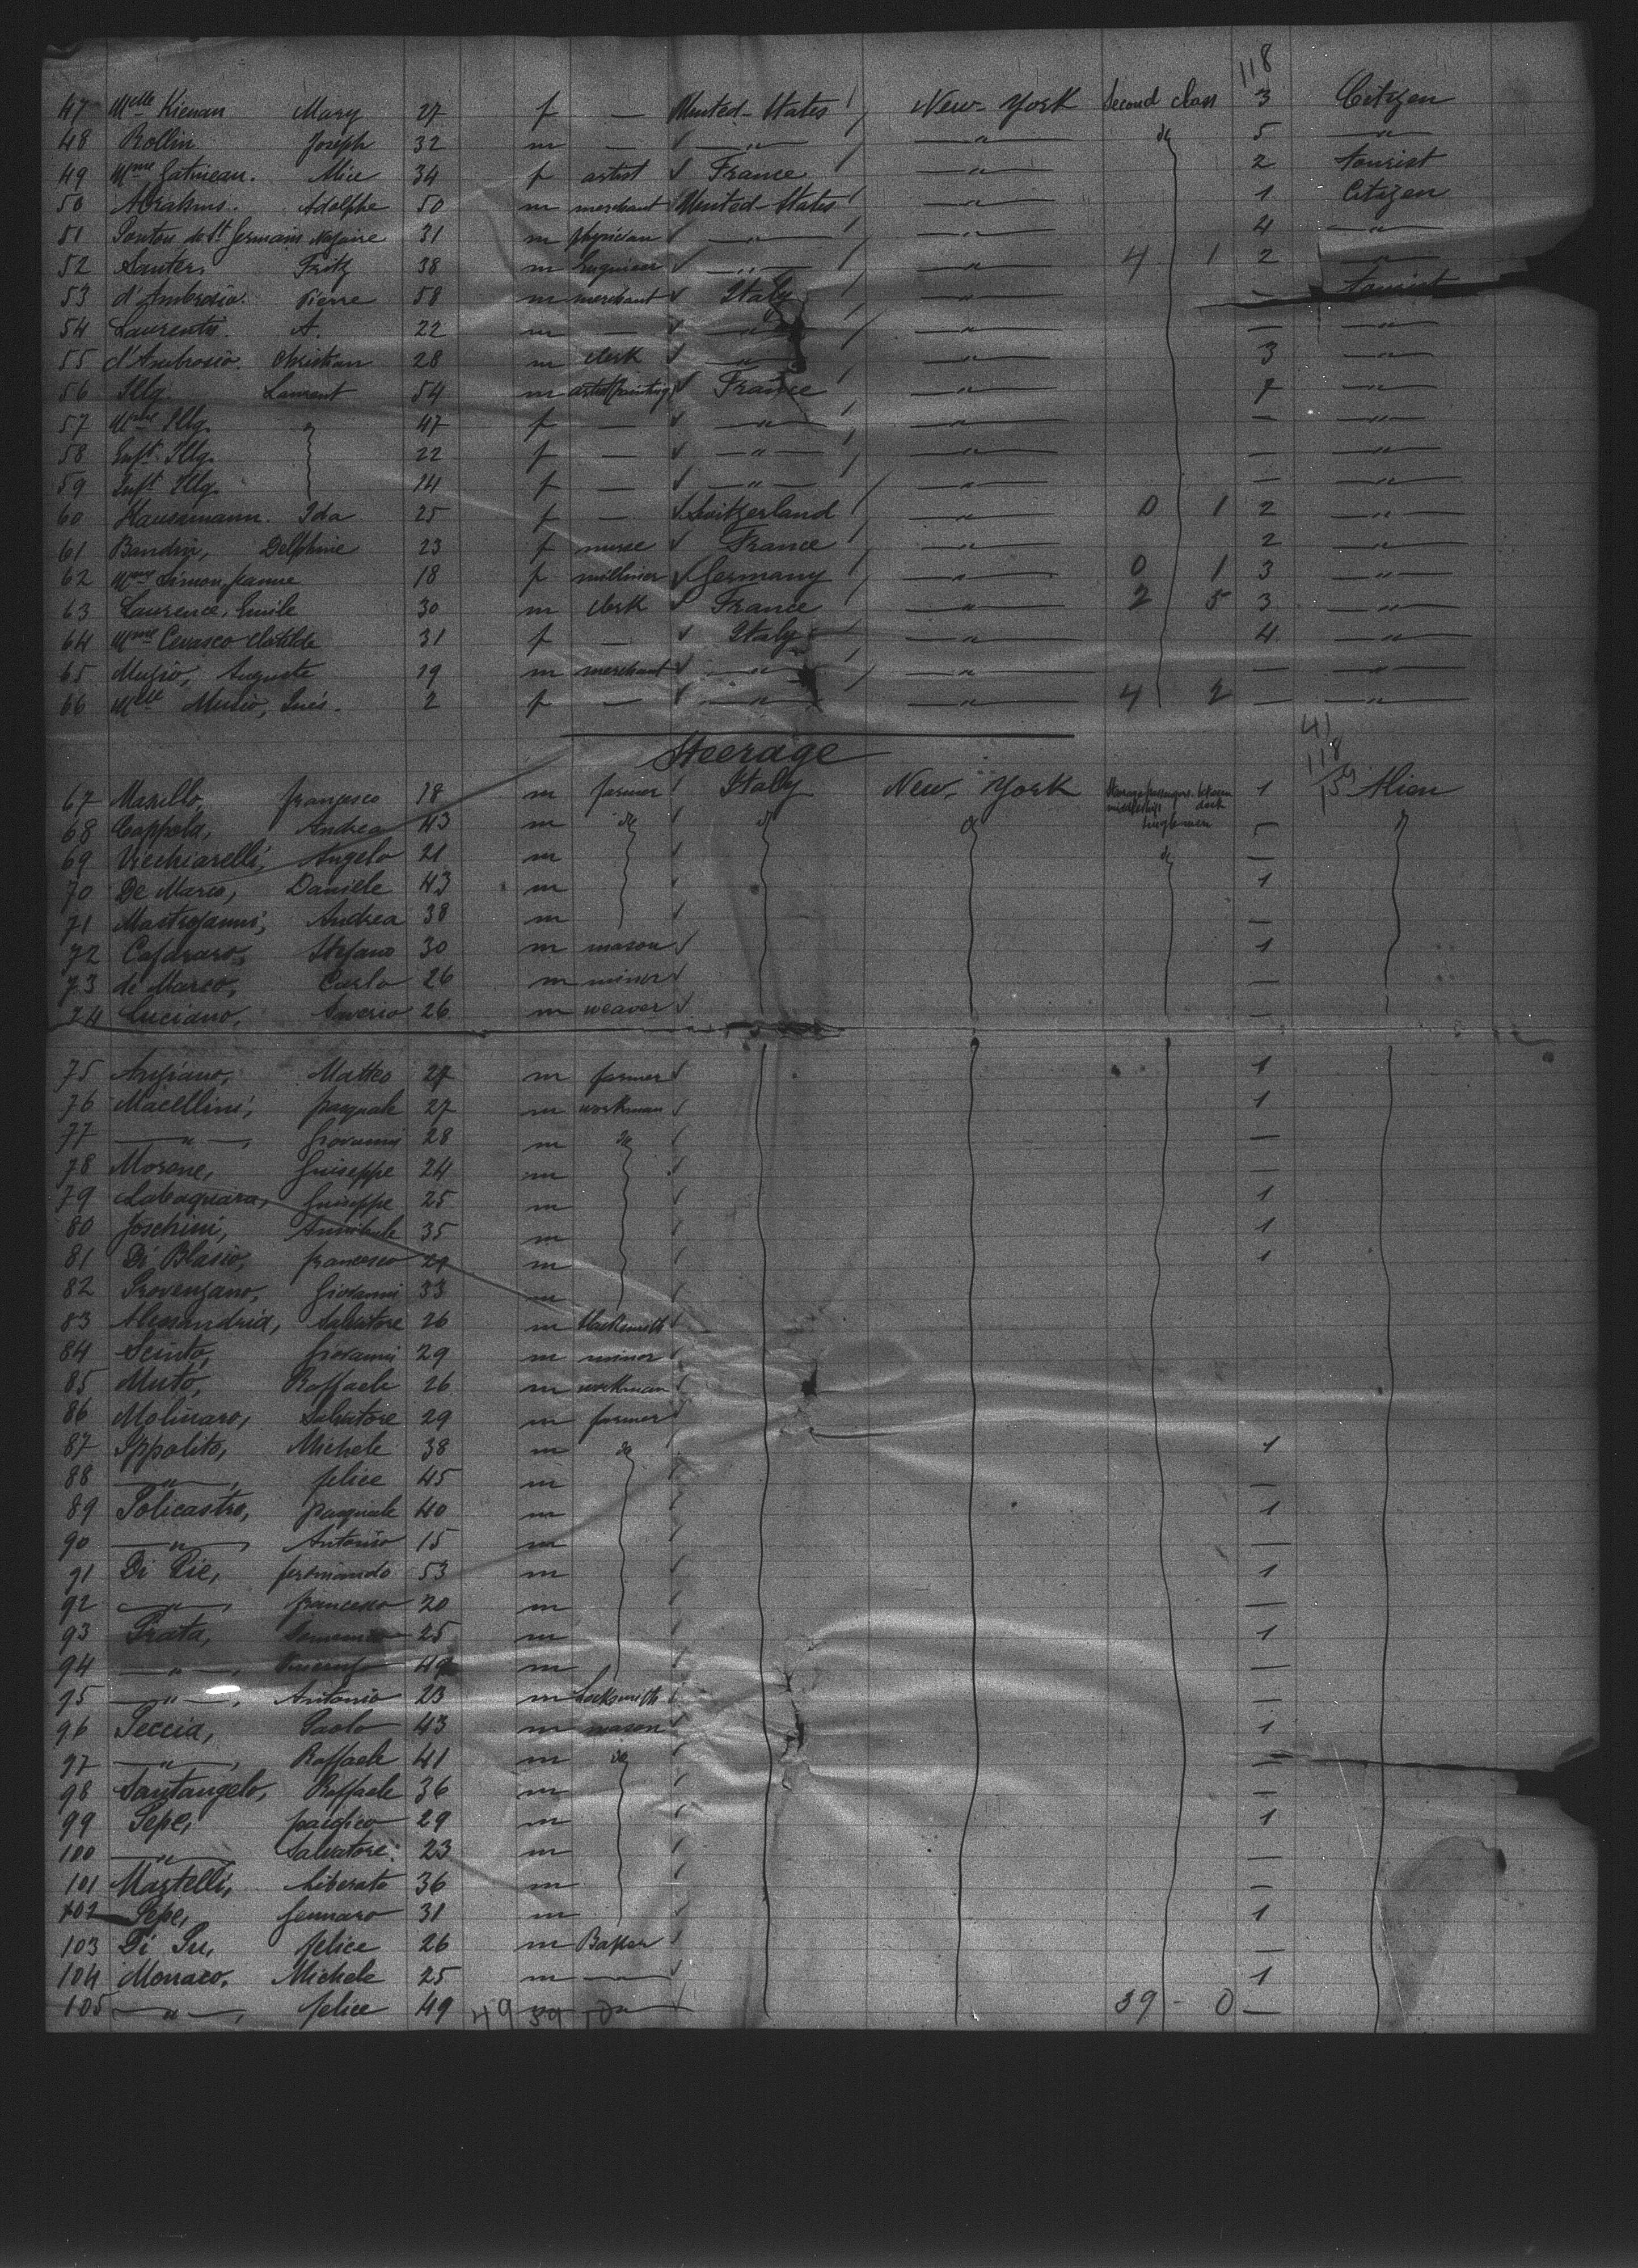 118
47 Mlle Kienan Mary 27 f — United-States New-York Second class 3 Citizen
48 Rollin Joseph 32 m — " " do 5 "
49 Mme Gatineau. Alice 34 f artist France " 2 tourist
50 Abrahms. Adolphe 50 m merchant United-States " 1 Citizen
51 Ponton de St Germain 31 m physician " " 4 "
52 Santer Fritz 38 m Engineer " " 4 1 2 "
53 d'Ambrosio. Pierre 58 m merchant Italy " — tourist
54 Laurentis. A. 22 m — " " — "
55 d'Ambrosio. Christian 28 m clerk " " 3 "
56 Illg. Laurent 54 m France " "
57 Illg. " 47 f — " " — "
58 Enft Illg. 22 f — " " — "
59 Enft Illg. 14 f — " " — "
60 Hausamann. Ida 25 f — Switzerland " 0 1 2 "
61 Baudin, Delphine 23 f nurse France " 2 "
62 Simon, Jeanne 18 f milliner Germany " 0 1 3 "
63 Laurence, Emile 30 m clerk France " 2 5 3 "
64 Mme Cevasco Clotilde 31 f — Italy " 4 "
65 Auguste 19 m merchant " " — "
66 Mlle Inès. 2 f — " " 4 2 — "
Steerage
41
118
159
67 Masullo, francesco 18 m farmer Italy New-York 1 Alien
68 Coppola, Andrea 43 m do do do — do
69 Vecchiarelli, Angelo 21 m do —
70 De Marco, Daniele 43 m 1
71 Mastrojanni, Andrea 38 m —
72 Stefano 30 m mason 1
73 de Marco, Carlo 26 m minor —
74 Luciano, Saverio 26 m weaver —
75 Matteo 27 m farmer 1
76 Macellini, pasquale 27 m workman 1
77 " , Giovanni 28 m do —
78 Morone, Guiseppe 24 m —
79 Labaquara, Guiseppe 25 m 1
80 Joschini, Annibale 35 m 1
81 Di Blasio, francesco m 1
82 Provenzano, Giovanni 33 m
83 Alessandria, Salvatore 26 m blacksmith
84 Scinto, Giovanni 29 m minor
85 Muto, Raffaele 26 m workman
86 Molinaro, Salvatore 29 m farmer
87 Ippolito, Michele 38 m do 1
88 " , felice 45 m —
89 Policastro, pasquale 40 m 1
90 " , Antonio 15 m —
91 Di Pie, ferdinando 53 m 1
92 " , francesco 20 m —
93 Prata, Domenico 25 m 1
94 " , Vincenzo 49 m —
95 " , Antonio 23 m Locksmith —
96 Peccia, Paolo 43 m mason 1
97 " , Raffaele 41 m do —
98 Santangelo, Raffaele 36 m —
99 Pepe, pacifico 29 m 1
100 " Salvatore. 23 m —
101 Mastelli, Liberato 36 m —
102 Pepe, Gennaro 31 m 1
103 felice 26 m Baker —
104 Monaco, Michele 25 m — 1
105 " , felice 49 49 39 39 - 0 —